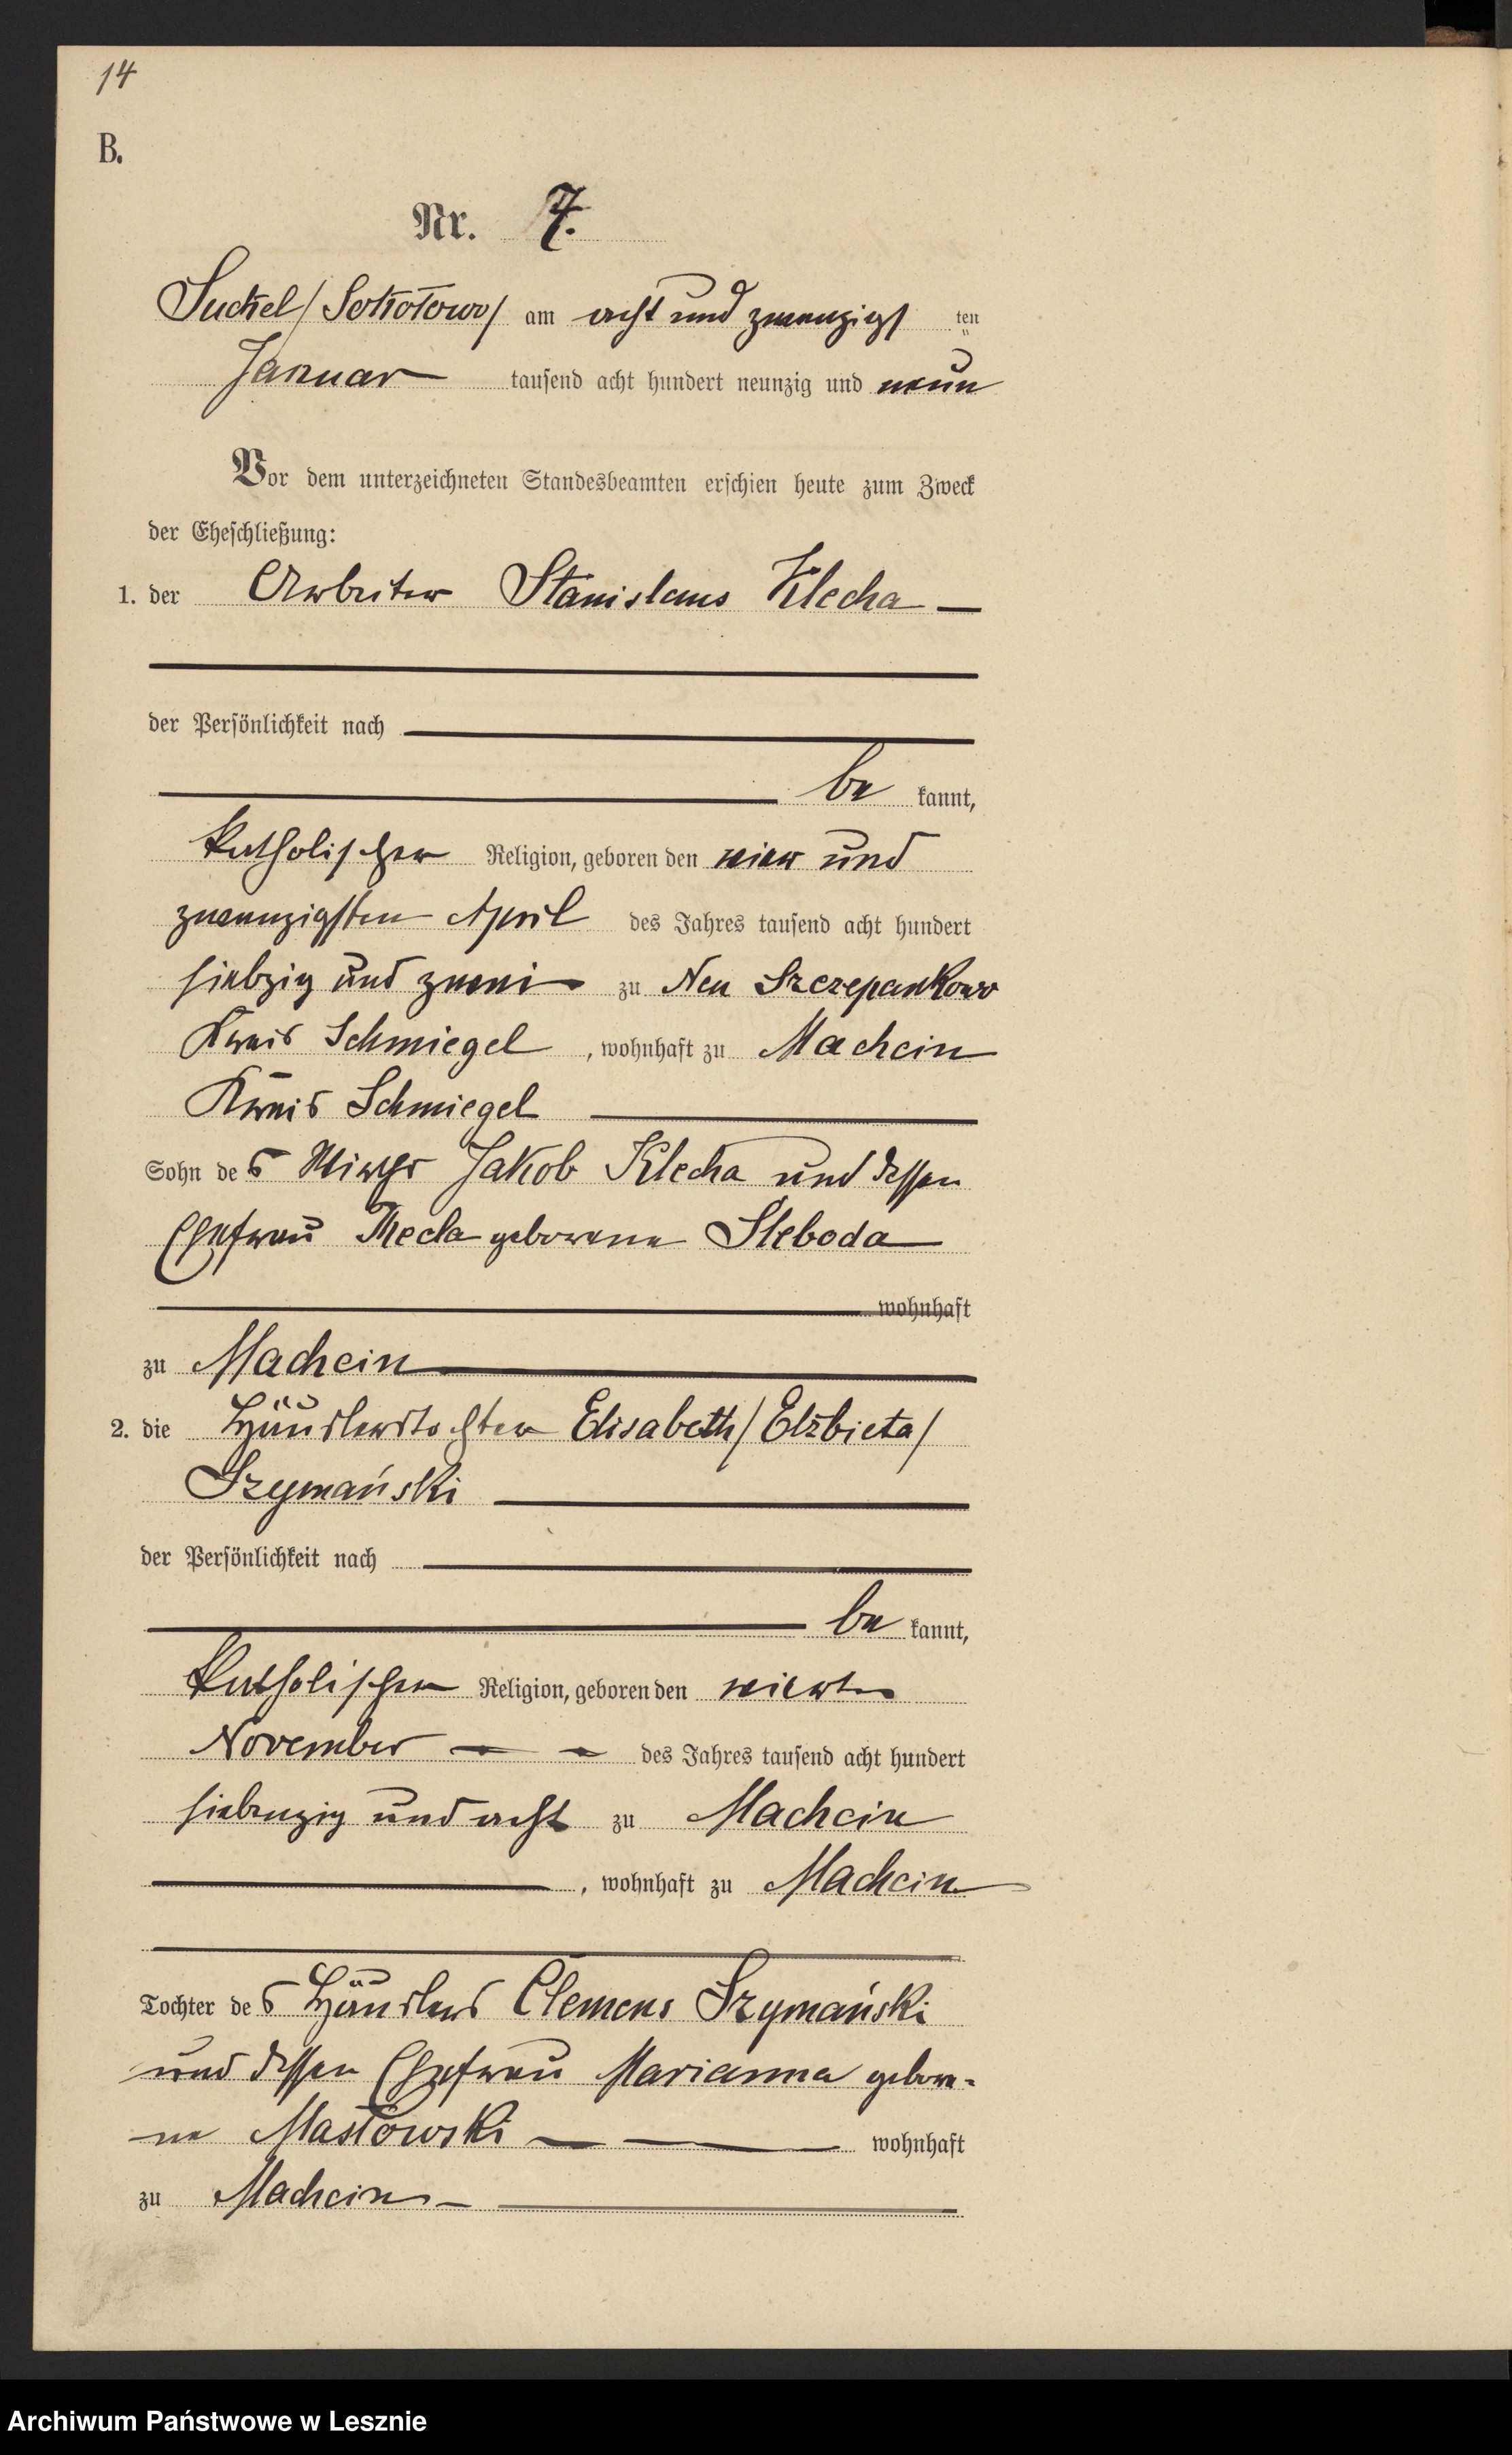 14
B.
Nr. 7.
Suckel/Sokołowo/ am acht und zwanzigsten
Januar tausend acht hundert neunzig und neun
Vor dem unterzeichneten Standesbeamten erschien heute zum Zweck
der Eheschließung:
1. der Arbeiter Stanislaus Klecha
der Persönlichkeit nach
be kannt,
katholischer Religion, geboren den vier und
zwanzigsten April des Jahres tausend acht hundert
siebzig und zwei zu Neu Szczepankowo
Kreis Schmiegel, wohnhaft zu Machcin
Kreis Schmiegel
Sohn des Jakob Klecha und dessen
Ehefrau Thecla geborene Sleboda
wohnhaft
zu Machcin
2. die Häuslerstochter Elisabeth/Elżbieta/
Szymański
der Persönlichkeit nach
be kannt,
katholischer Religion, geboren den vierten
November des Jahres tausend acht hundert
siebenzig und acht zu Machcin
, wohnhaft zu Machcin
Tochter des Häuslers Clemens Szymański
und dessen Ehefrau Marianna gebore-
ne Masłowski wohnhaft
zu Machcin
Archiwum Państwowe w Lesznie